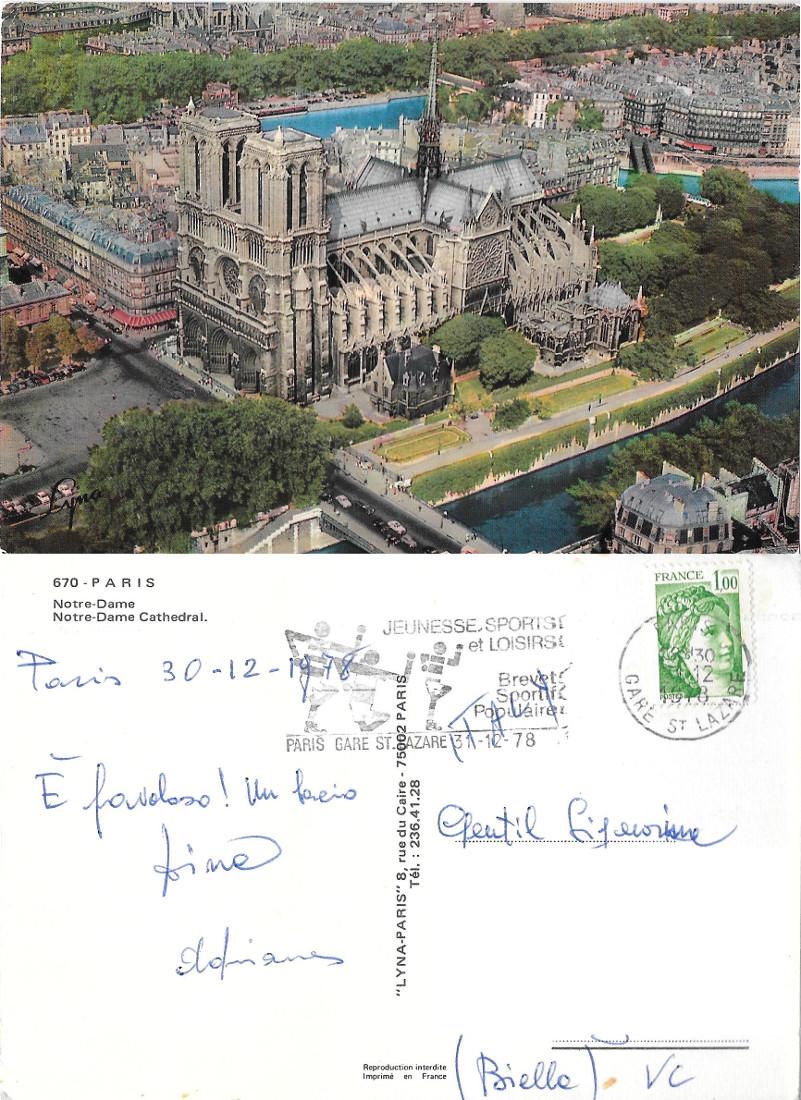 Lyna
670 - PARIS
Notre-Dame
Notre-Dame Cathedral.
Paris 30-12-1978
È favoloso! Un bacio
Adriano
JEUNESSE, SPORTS
et LOISIRS
Brevet
Sportif
Populaire
PARIS GARE ST. LAZARE 31-12-78
FRANCE 1,00
POSTES
GARE ST LAZARE
"LYNA-PARIS" 8, rue du Caire - 75002 PARIS
Tél. : 236.41.28
Gentil Signorina
(Biella) VC
Reproduction interdite
Imprimé en France